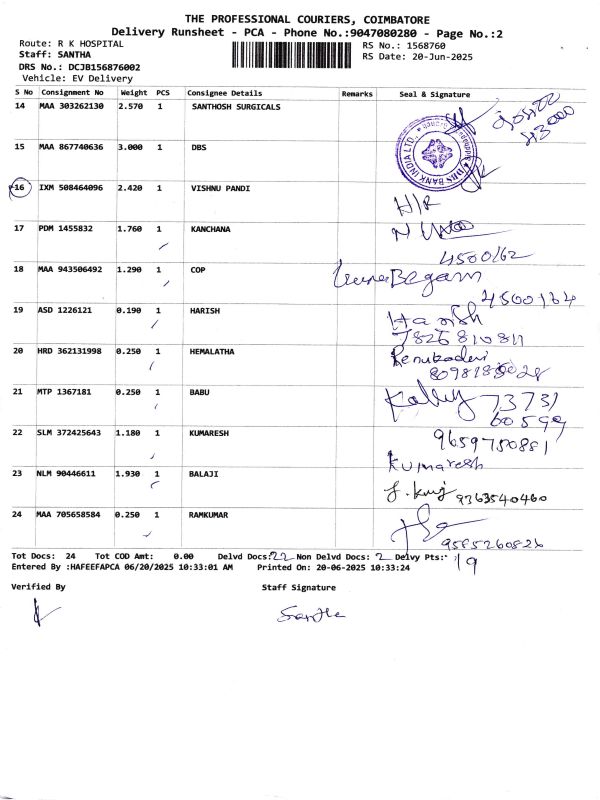 THE PROFESSIONAL COURIERS, COIMBATORE
Delivery Runsheet - PCA - Phone No.:9047080280 - Page No.:2
Route: R K HOSPITAL
Staff: SANTHA
DRS No.: DCJB156876002
Vehicle: EV Delivery
RS No.: 1568760
RS Date: 20-Jun-2025
S No Consignment No Weight PCS Consignee Details Remarks Seal & Signature
14 MAA 303262130 2.570 1 SANTHOSH SURGICALS
43000
15 MAA 867740636 3.000 1 DBS
DBS BANK INDIA LTD.,
16 IXM 508464096 2.420 1 VISHNU PANDI
H/R
17 PDM 1455832 1.760 1 KANCHANA
4500162
18 MAA 943506492 1.290 1 COP
Begam
4500164
19 ASD 1226121 0.190 1 HARISH Harish
7826810811
20 HRD 362131998 0.250 1 HEMALATHA Renukadevi
21 MTP 1367181 0.250 1 BABU
73731
60599
22 SLM 372425643 1.180 1 KUMARESH 9659750881
Kumaresh
23 NLM 90446611 1.930 1 BALAJI
9363540460
24 MAA 705658584 0.250 1 RAMKUMAR
9585260826
Tot Docs: 24 Tot COD Amt: 0.00 Delvd Docs: 22 Non Delvd Docs: 2 Delvy Pts: 19
Entered By :HAFEEFAPCA 06/20/2025 10:33:01 AM Printed On: 20-06-2025 10:33:24
Verified By Staff Signature
Santha